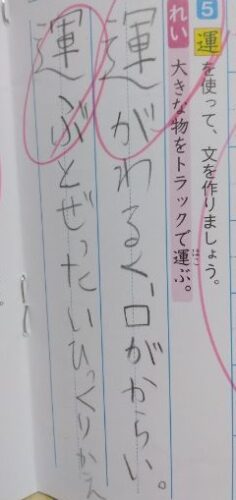 5 運を使って、文を作りましょう。
れい 大きな物をトラックで運ぶ。
はこ
運がわるく、口がからい。
運ぶとぜったいひっくりかえ